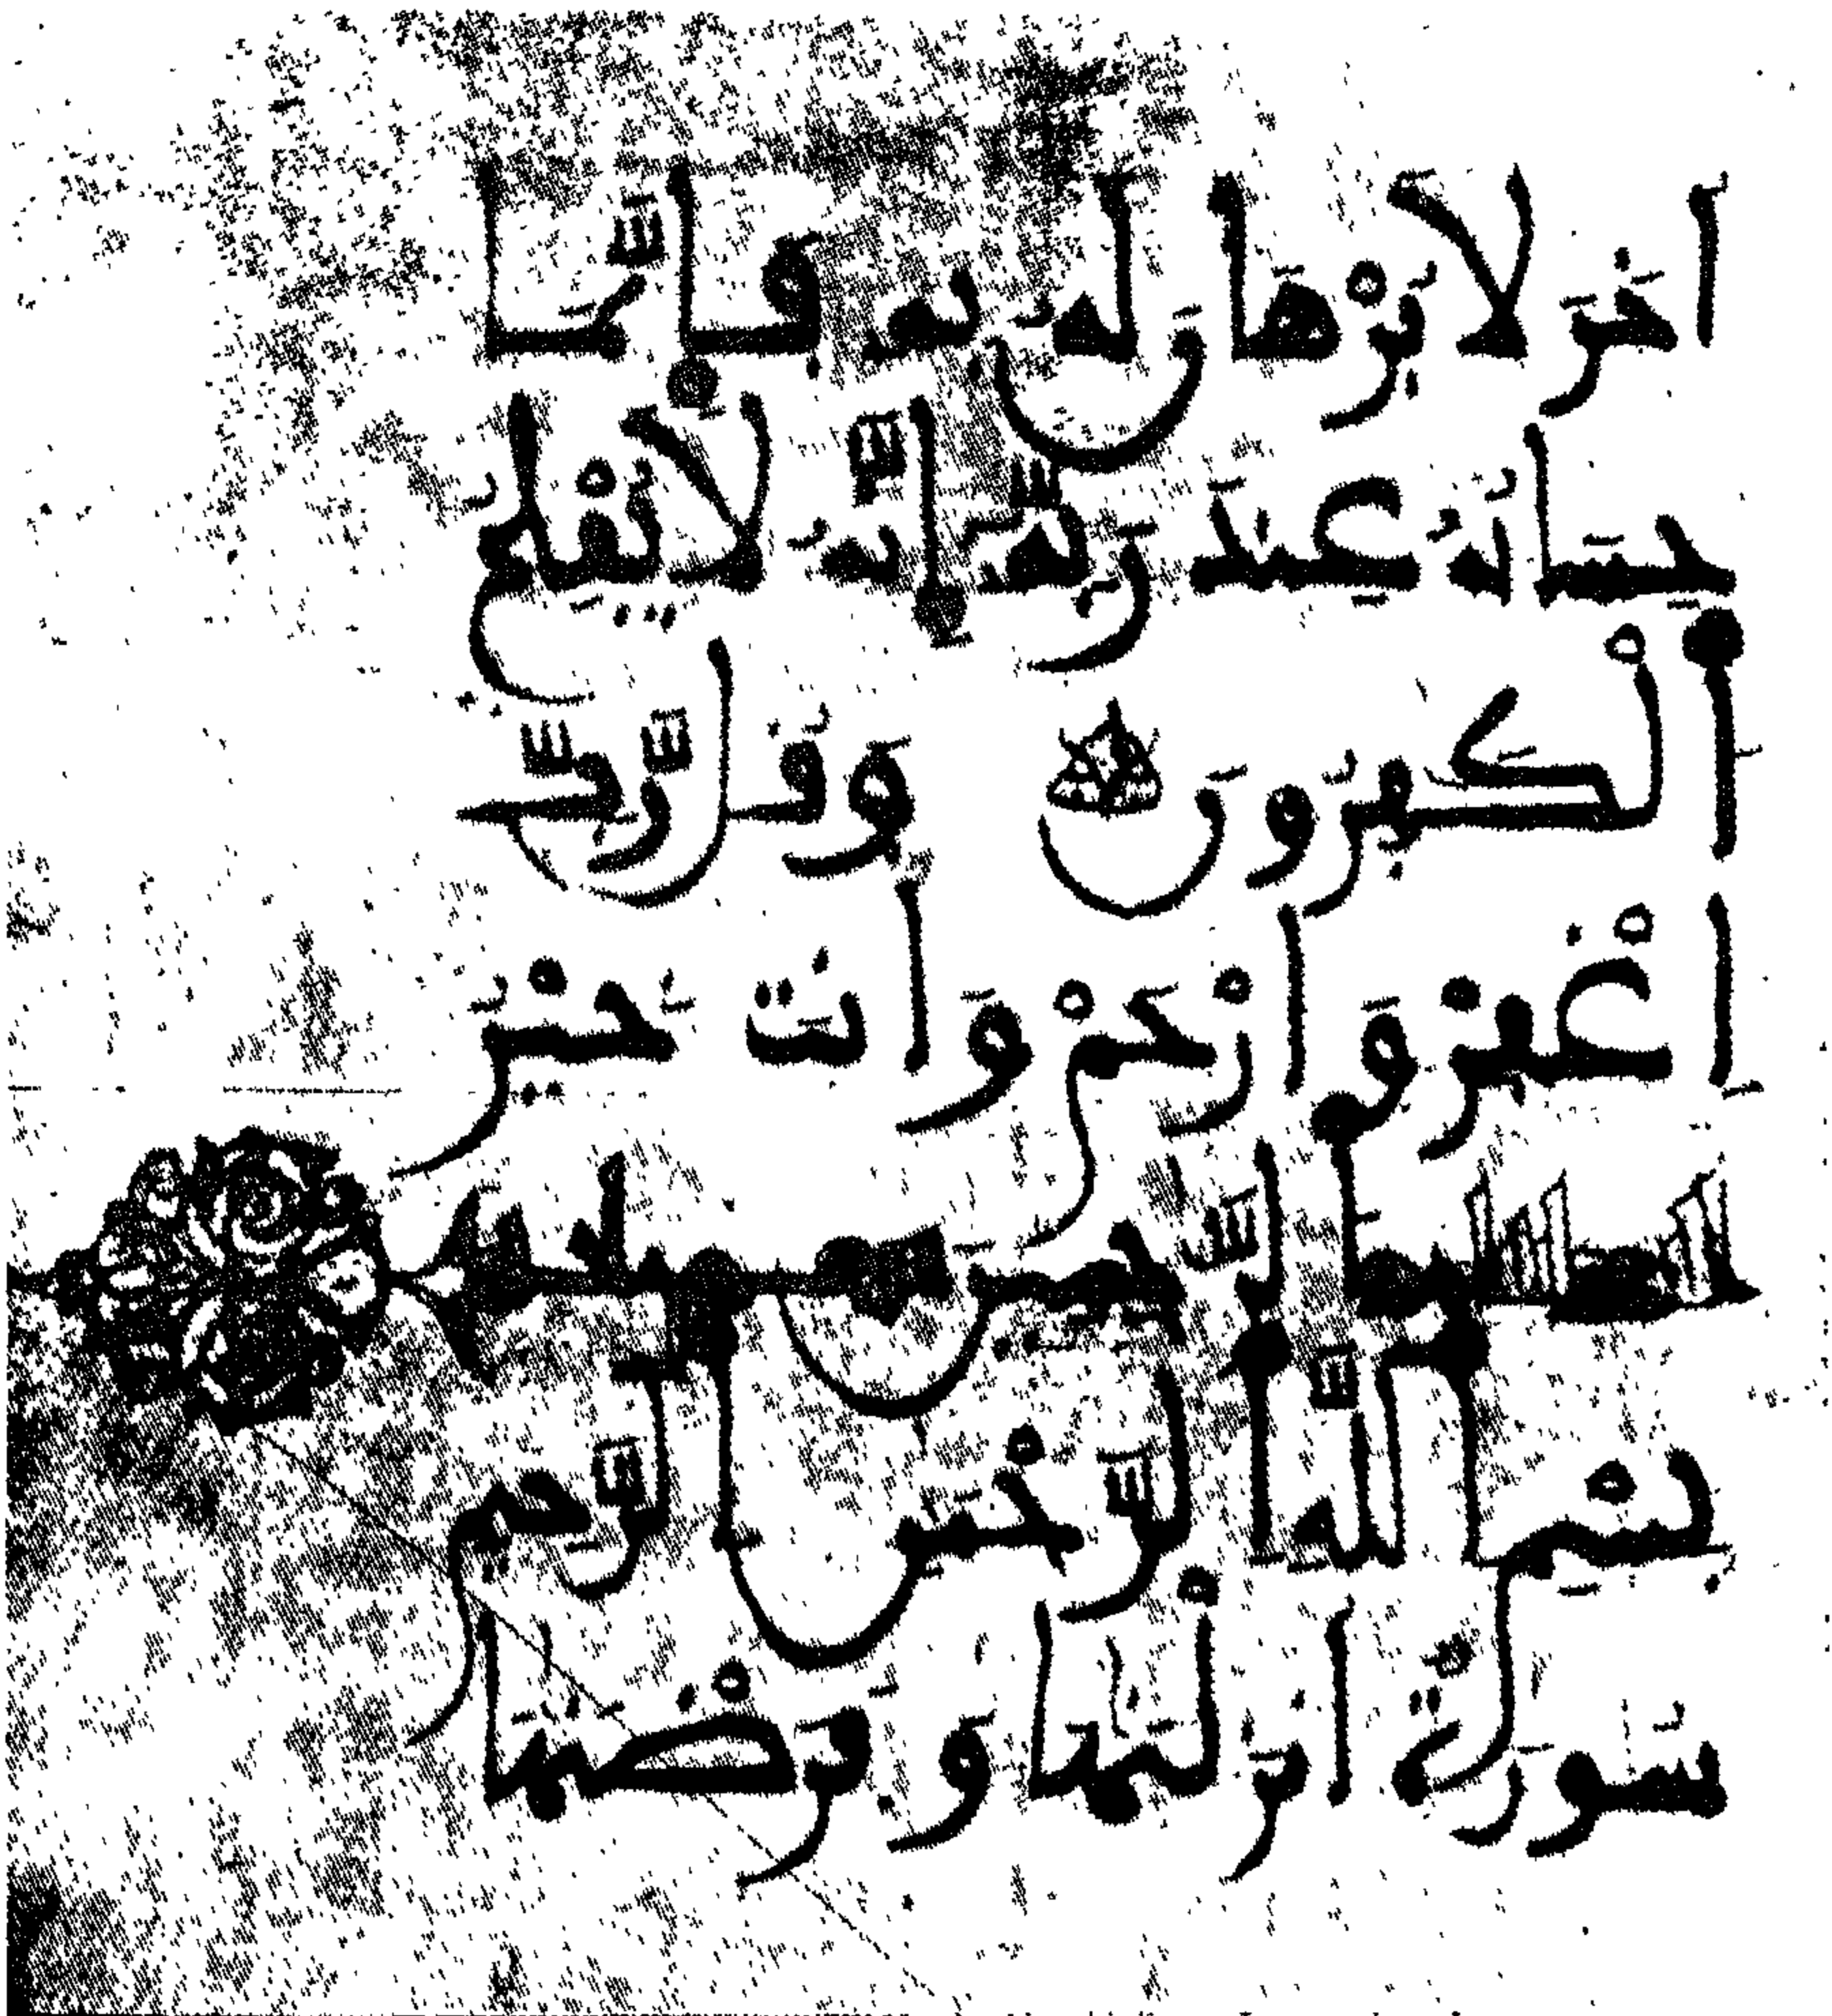 اٰخَرَ لَا بُرْهَانَ لَهُ بِهِ فَإِنَّمَا
حِسَابُهُ عِنْدَ رَبِّهِ إِنَّهُ لَا يُفْلِحُ
اَلْكٰفِرُونَ وَقُل رَّبِّ
اِغْفِرْ وَارْحَمْ وَأَنتَ خَيْرُ
الرَّٰحِمِينَ
بِسْمِ اللَّهِ الرَّحْمَٰنِ الرَّحِيمِ
سُورَةٌ أَنزَلْنَٰهَا وَفَرَضْنَٰهَا